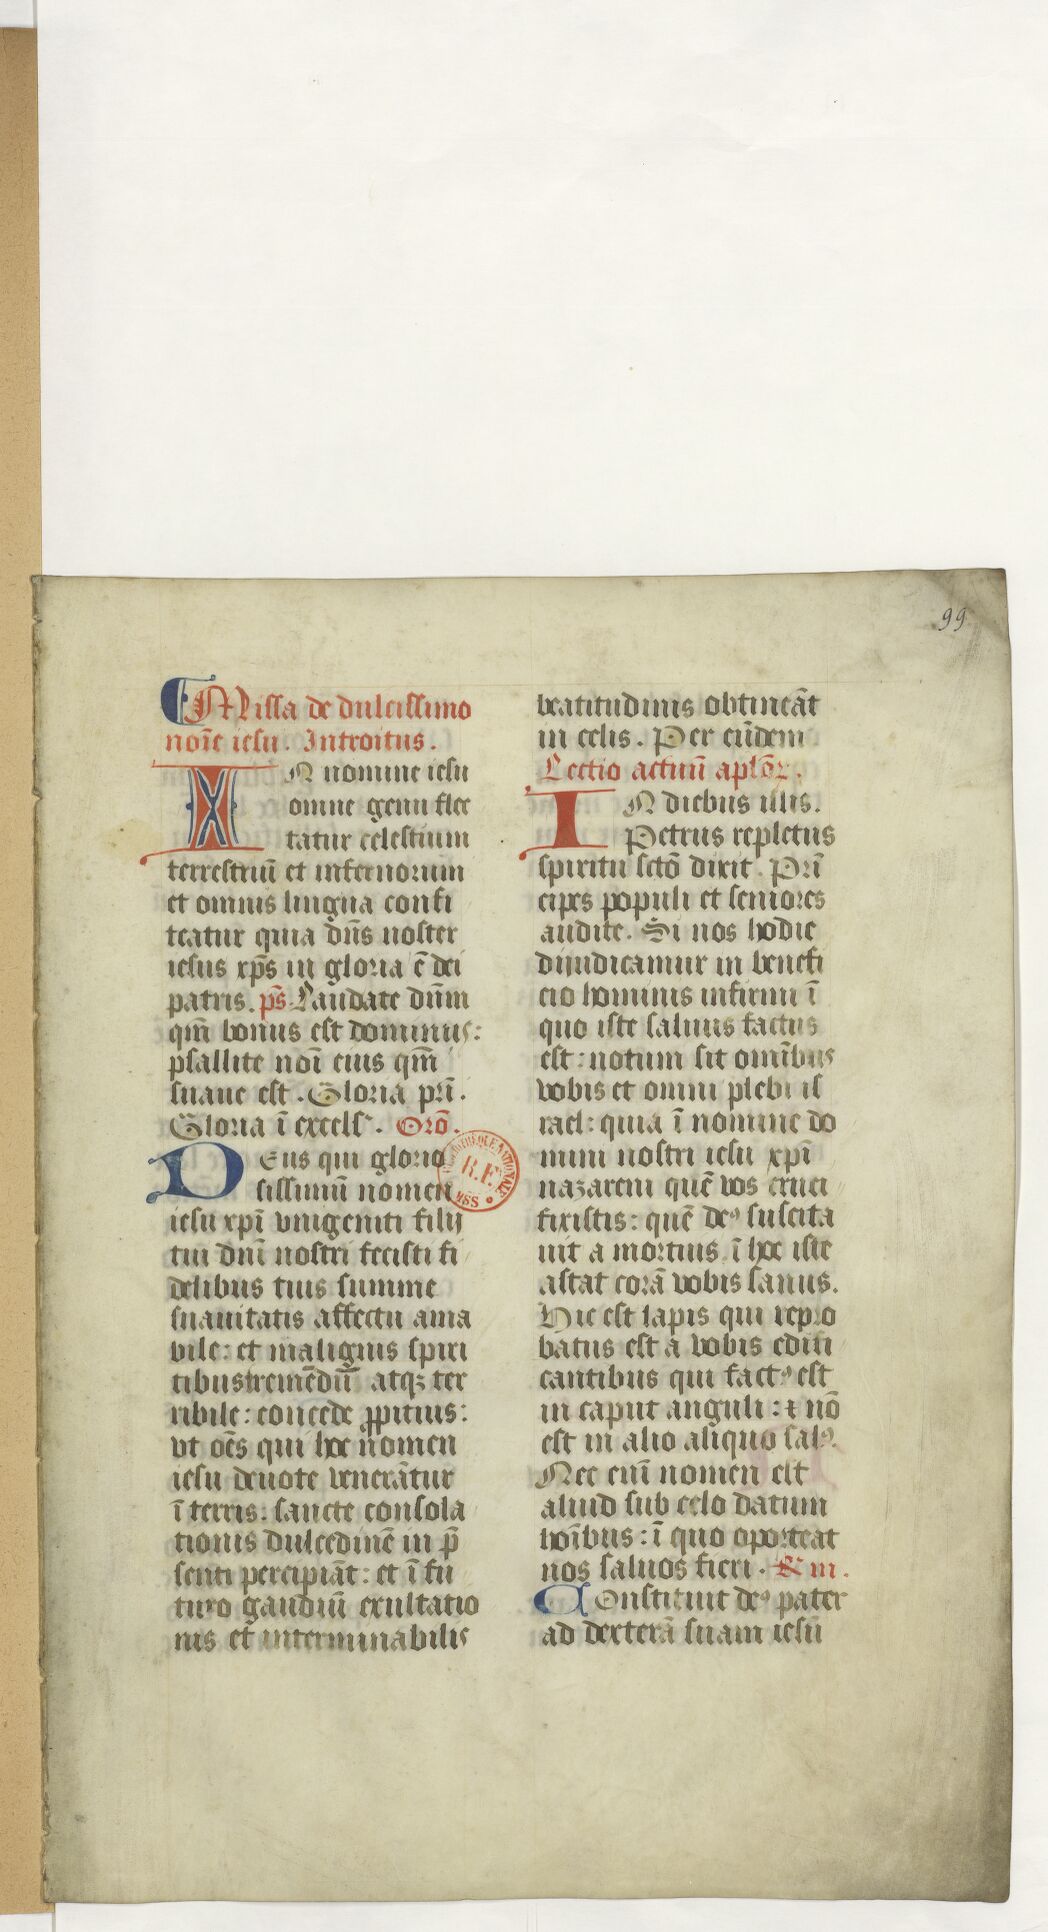 99
Missa de dulcissimo
noīe iesu. Introitus.
IN nomine iesu
omne genu flec
tatur celestium
terrestriū et infernorum
et omnis lingua confi
teatur quia dn̄s noster
iesus xp̄s in gloria ē dei
patris. ps̄. Laudate dūm
qm̄ bonus est dominus:
psallite noī eius qm̄
suaue est. Gloria pr̄i.
Gloria ī excelsꝭ. Orō.
DEus qui glorio
sissimū nomen
iesu xp̄i vnigeniti filij
tui dn̄i nostri fecisti fi
delibus tuis summe
suauitatis affectu ama
bile: et malignis spiri
tibus tremēdū atqꝫ ter
ribile: concede ꝓpitius:
vt oēs qui hoc nomen
iesu deuote venerātur
ī terris: sancte consola
tionis dulcedinē in p̄
senti percipiāt: et ī fu
turo gaudiū exultatio
nis et interminabilis
beatitudinis obtineāt
in celis. Per eūdem
Lectio actuū apl̄oꝝ.
IN diebus illis.
Petrus repletus
spiritu sctō dixit. Prī
cipes populi et seniores
audite. Si nos hodie
dijudicamur in benefi
cio hominis infirmi ī
quo iste saluus factus
est: notum sit omībus
vobis et omni plebi is
rael: quia ī nomine do
mini nostri iesu xp̄i
nazareni quē vos cruci
fixistis: quē deꝰ suscita
uit a mortuis. ī hoc iste
astat corā vobis sanus.
Hic est lapis qui repro
batus est a vobis edifi
cantibus qui factꝰ est
in caput anguli: ⁊ nō
est in alio aliquo salꝰ.
Nec enī nomen est
aliud sub celo datum
hoībus: ī quo oporteat
nos saluos fieri.
Constituit deꝰ pater
ad dexterā suam iesū
BIBLIOTHEQUE NATIONALE
R.F.
MSS